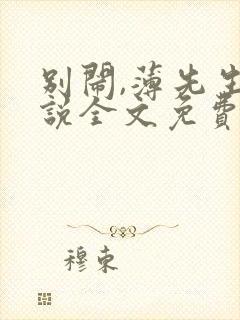 别鬧,薄先生
説全文免費
穆束